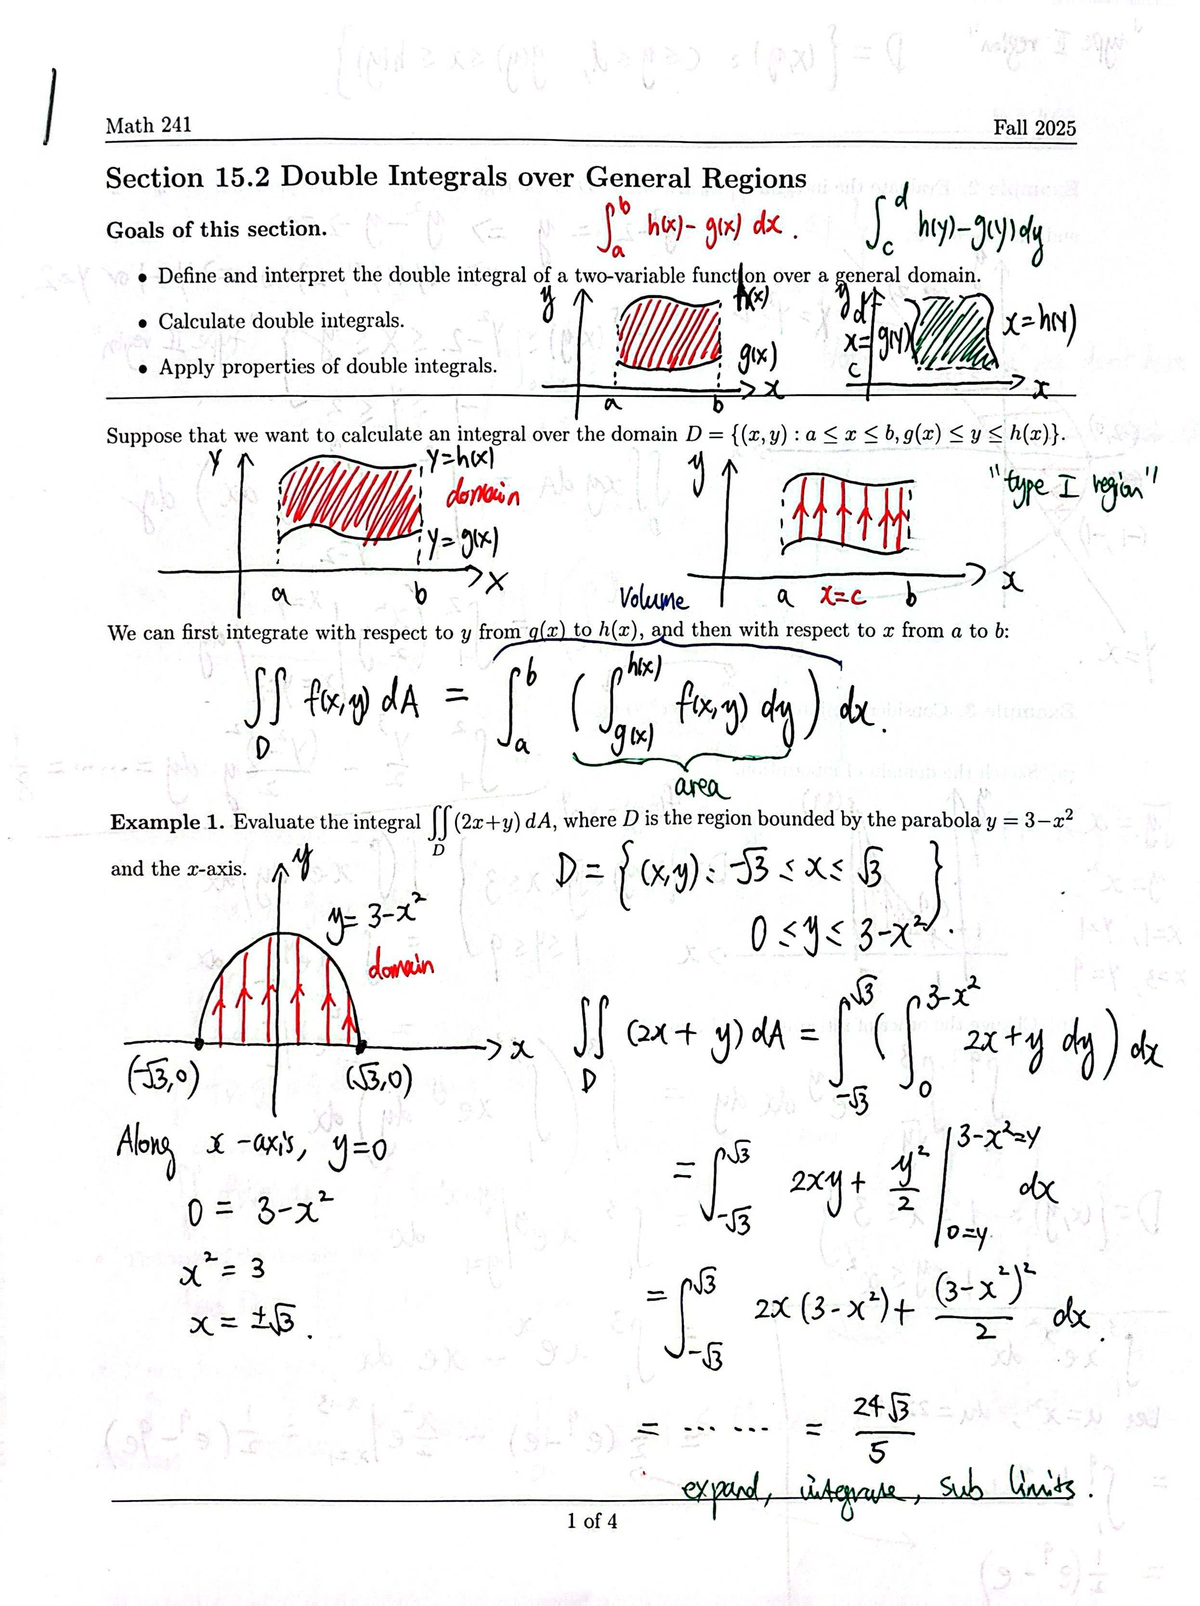 Math 241
Fall 2025
Section 15.2 Double Integrals over General Regions
Goals of this section.
∫_a^b h(x) - g(x) dx.
∫_c^d h(y) - g(y) dy
• Define and interpret the double integral of a two-variable function over a general domain.
• Calculate double integrals.
• Apply properties of double integrals.
y
h(x)
g(x)
a
b
x
y
d
x=g(y)
c
x=h(y)
x
Suppose that we want to calculate an integral over the domain D = {(x, y) : a ≤ x ≤ b, g(x) ≤ y ≤ h(x)}.
y
y=h(x)
domain
y=g(x)
a
b
x
y
"type I region"
a
x=c
b
x
Volume
We can first integrate with respect to y from g(x) to h(x), and then with respect to x from a to b:
∬_D f(x,y) dA = ∫_a^b ( ∫_{g(x)}^{h(x)} f(x,y) dy ) dx.
area
Example 1. Evaluate the integral ∬_D (2x+y) dA, where D is the region bounded by the parabola y = 3−x²
and the x-axis.
y
y= 3-x²
domain
x
(-√3,0)
(√3,0)
Along x-axis, y=0
0 = 3-x²
x² = 3
x = ±√3.
D = { (x,y) : -√3 ≤ x ≤ √3
0 ≤ y ≤ 3-x² }.
∬_D (2x + y) dA = ∫_{-√3}^{√3} ( ∫_0^{3-x²} 2x+y dy ) dx
= ∫_{-√3}^{√3} 2xy + y²/2 |_{0=y}^{3-x²=y} dx
= ∫_{-√3}^{√3} 2x (3-x²) + (3-x²)²/2 dx.
= ...... = 24√3/5
expand, integrate, sub limits.
1 of 4